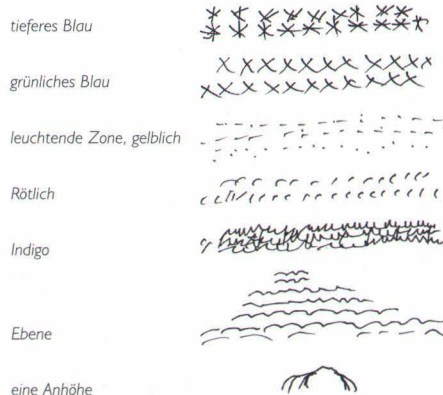 tieferes Blau
grünliches Blau
leuchtende Zone, gelblich
Rötlich
Indigo
Ebene
eine Anhöhe